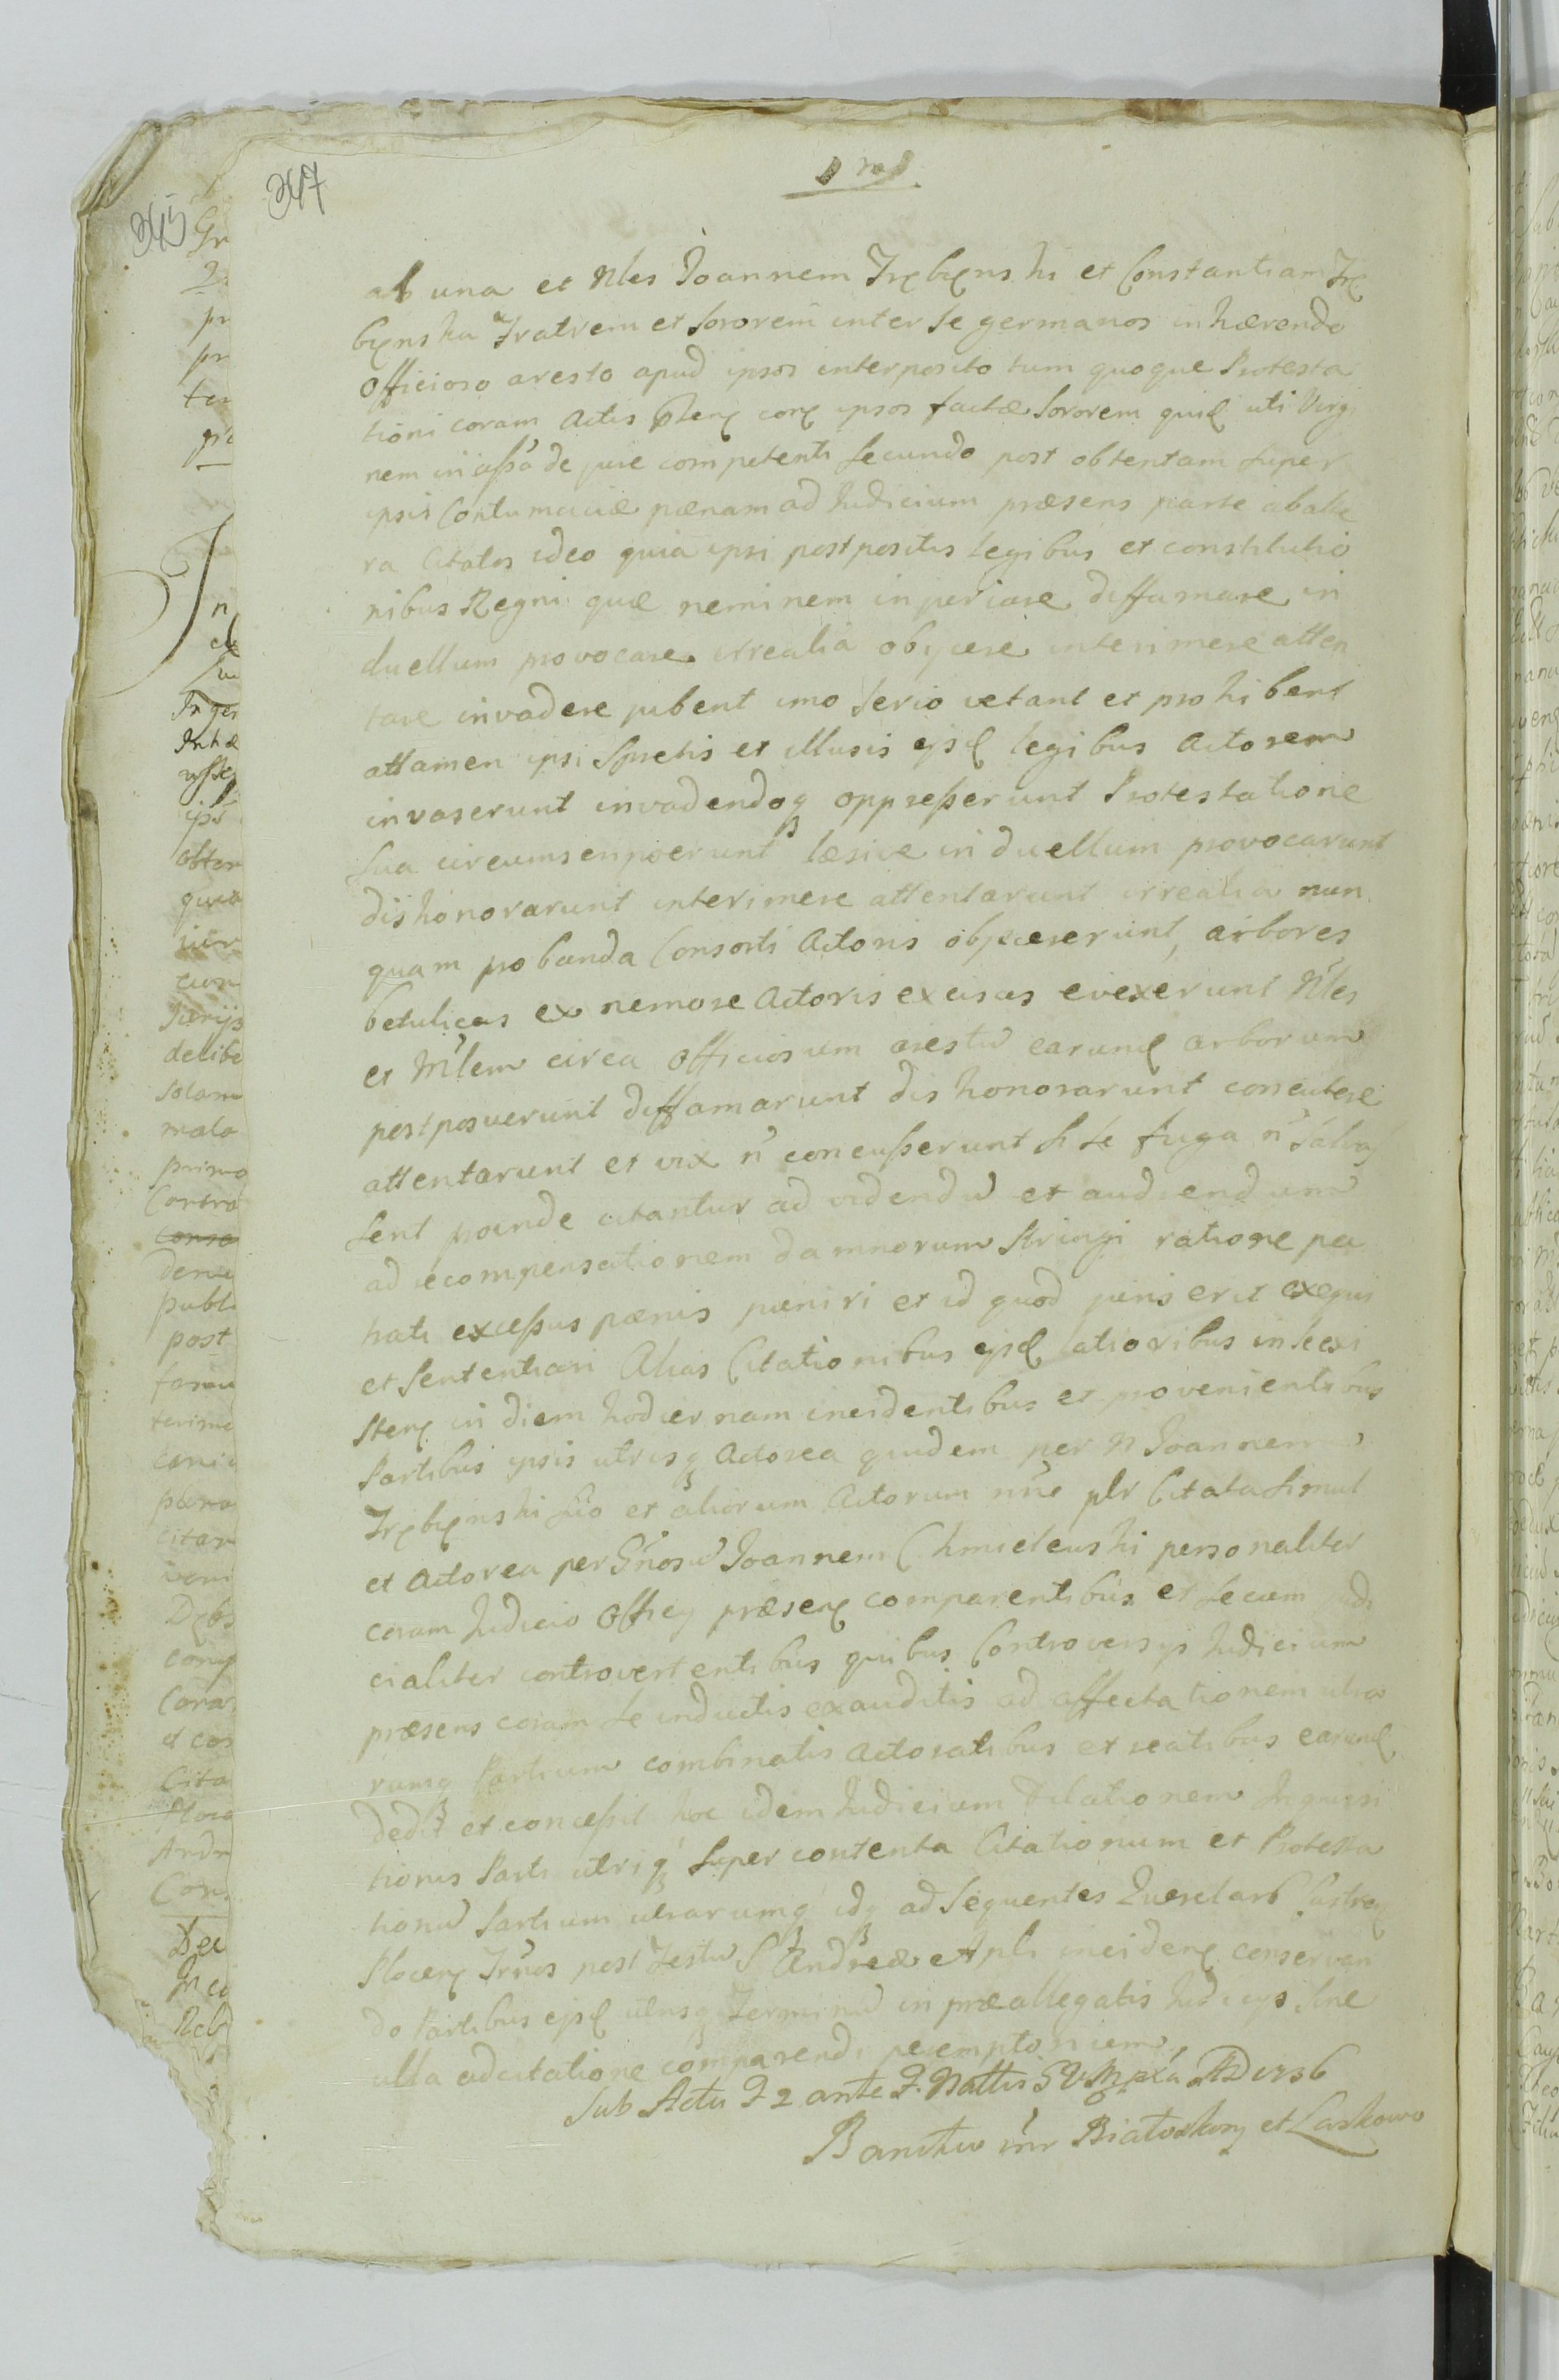 347
ab una et Nles Joannem Trębęnski et Constantiam Trę
bęnska Fratrem et Sororem inter se germanos inhærendo
Officioso aresto apud ipsos interposito tum quoque Protesta
tioni coram Actis factæ Sororem uti Virgi
nem in de jure competenti secundo post obtentam super
ipsis Contumaciæ pænam ad Judicium præsens parte ab alte
ra Citatos ideo quia ipsi postpositis legibus et constitutio
nibus Regni quæ neminem injuriare diffamare in
duellum provocare irrealia obijcere interimere atten
tare invadere jubent imo serio vetant et prohibent
attamen ipsi spretis et illusis ijsd legibus Actorem
invaserunt invadendoq oppresserunt Protestatione
sua circumscripserunt læsive in duellum provocarunt
dishonorarunt interimere attentarunt irrealia nun
quam probanda Consorti Actoris objecerunt, arbores
betulicas ex nemore Actoris excisas evexerunt Nles
et Mlem circa Officiosum arestu earund arborum
postposuerunt diffamarunt dishonorarunt concutere
attentarunt et vix n concusserunt si se fuga n salvas
sent proinde citantur ad videndu et audiendum
ad recompensationem damnorum stringi ratione pa
trati excessus pænis puniri et id quod juris erit exequi
et sententiari Alias Citationibus ijsd latioribus in se exi
sten in diem hodiernam incidentibus et provenientibus
Partibus ipsis utrisq Actorea quidem per N Joannem
Trębęnski suo et aliorum Actorum nne plr Citata simul
et Actorea per Gnosu Joannem Chmielewski personaliter
coram Judicio Officij præsen comparentibus et secum judi
cialiter controvertentibus quibus Controversijs Judicium
præsens coram se inductis exauditis ad affectationem utra
rumq Partium combinatis Actoratibus et reatibus earund
dedit et concessit hoc idem Judicium Dilationem Inquisi
tionis Parti utriq super contenta Citationum et Protesta
tionu Partium utrarumq idq ad sequentes Querelar Castren
Plocen Trnos post Festu S Andreæ Apli inciden conservan
do Partibus ijsd utrisq Terminu in præallegatis Judicijs sine
ulla adcitatione comparendi peremptorium
Sub Actu F 2 ante F. Nattis S V M AD 1736
et Laskowo